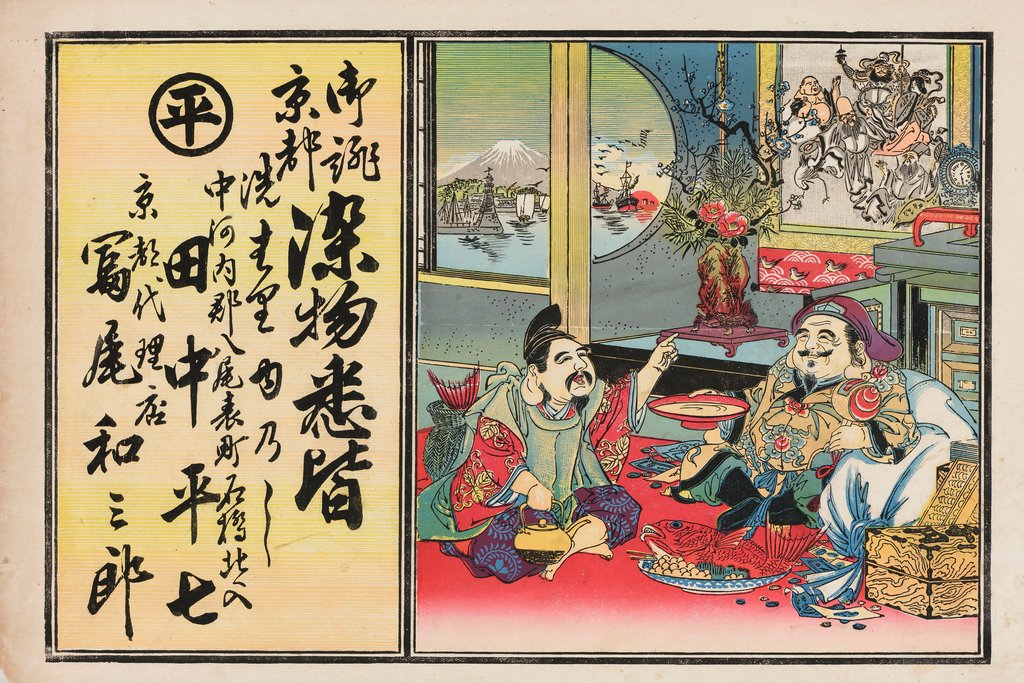 御誂
京都
染物悉皆
洗は里 ゆ乃し
中河内郡八尾表町石橋北へ入
田中平七
平
京都代理店
尾和三郎